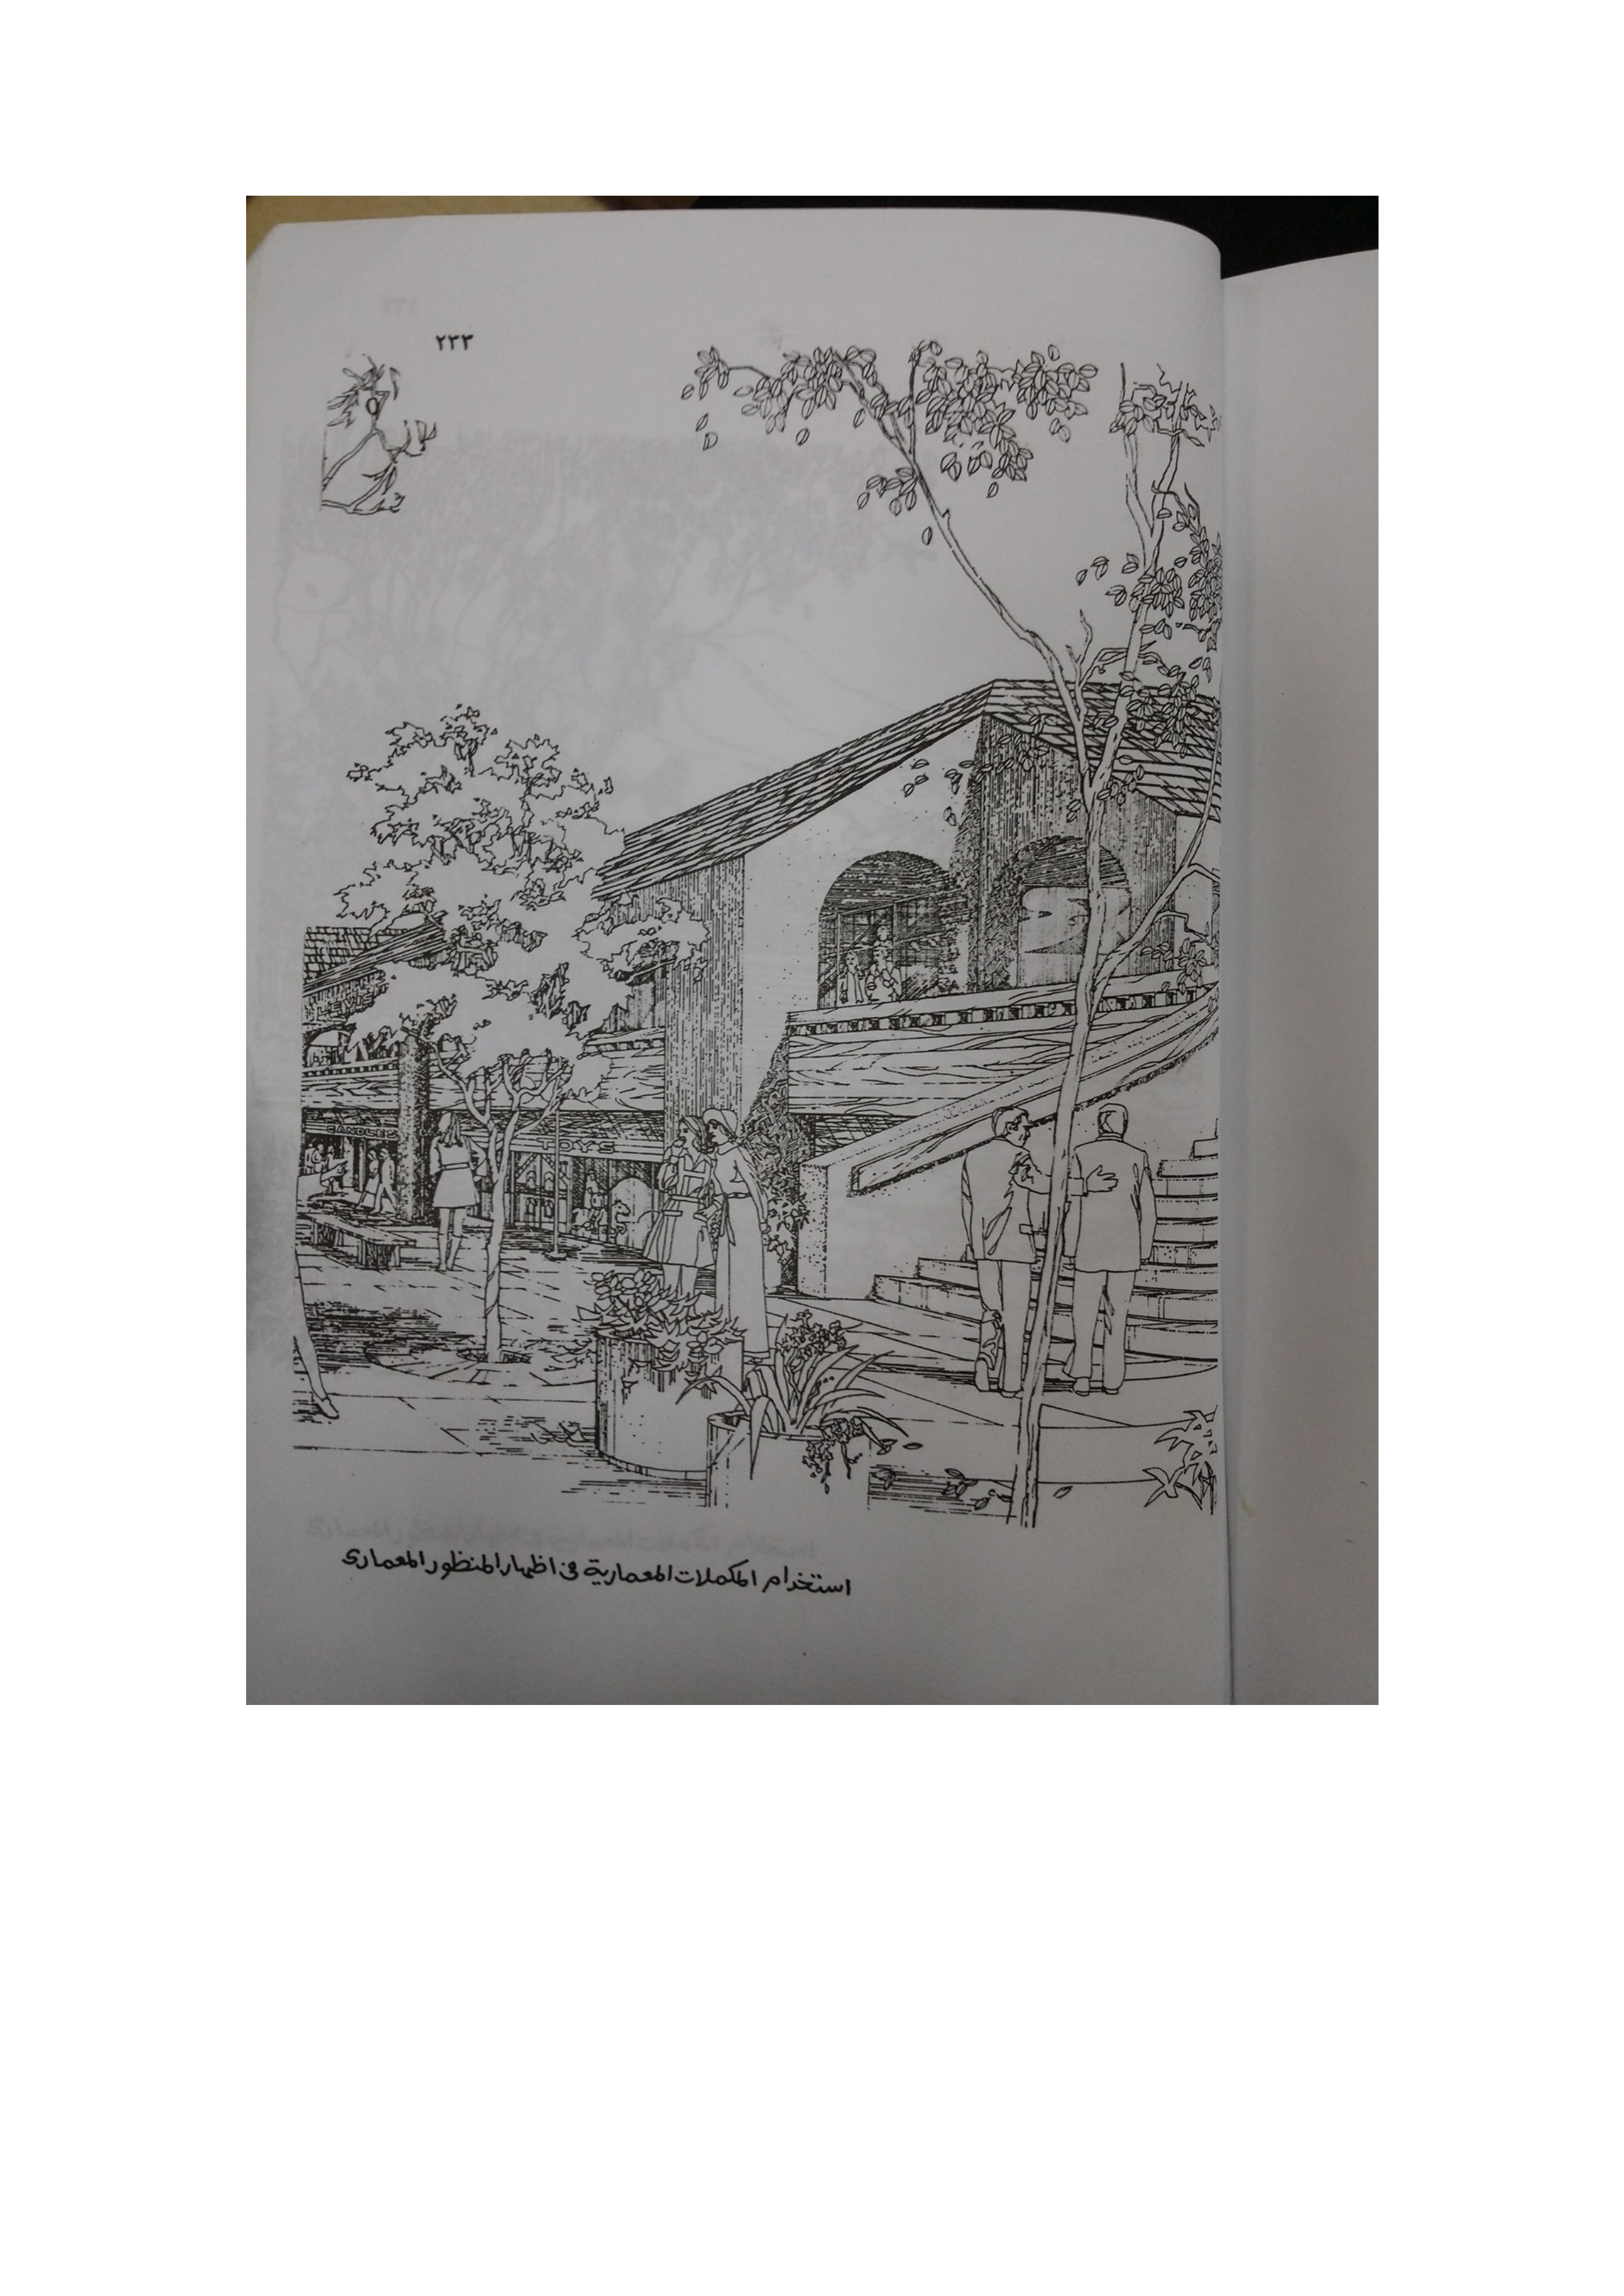 ٢٣٣
CANDLES
TOYS
استخدام المكملات المعمارية فى اظهار المنظور المعمارى